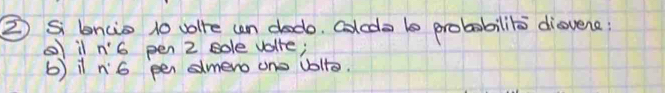 ② Si lancia 10 volte un dado. Calcola la probabilità di avere:
a) il n° 6 per 2 sole volte;
b) il n° 6 per almeno una volta.